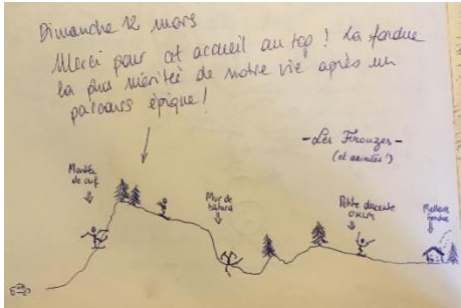 Dimanche 12 mars
Merci pour cet accueil au top ! La fondue
la plus méritée de notre vie après un
parcours épique !
- Les -
Montée
de
Mur de
Petite descente
Meilleure
fondue